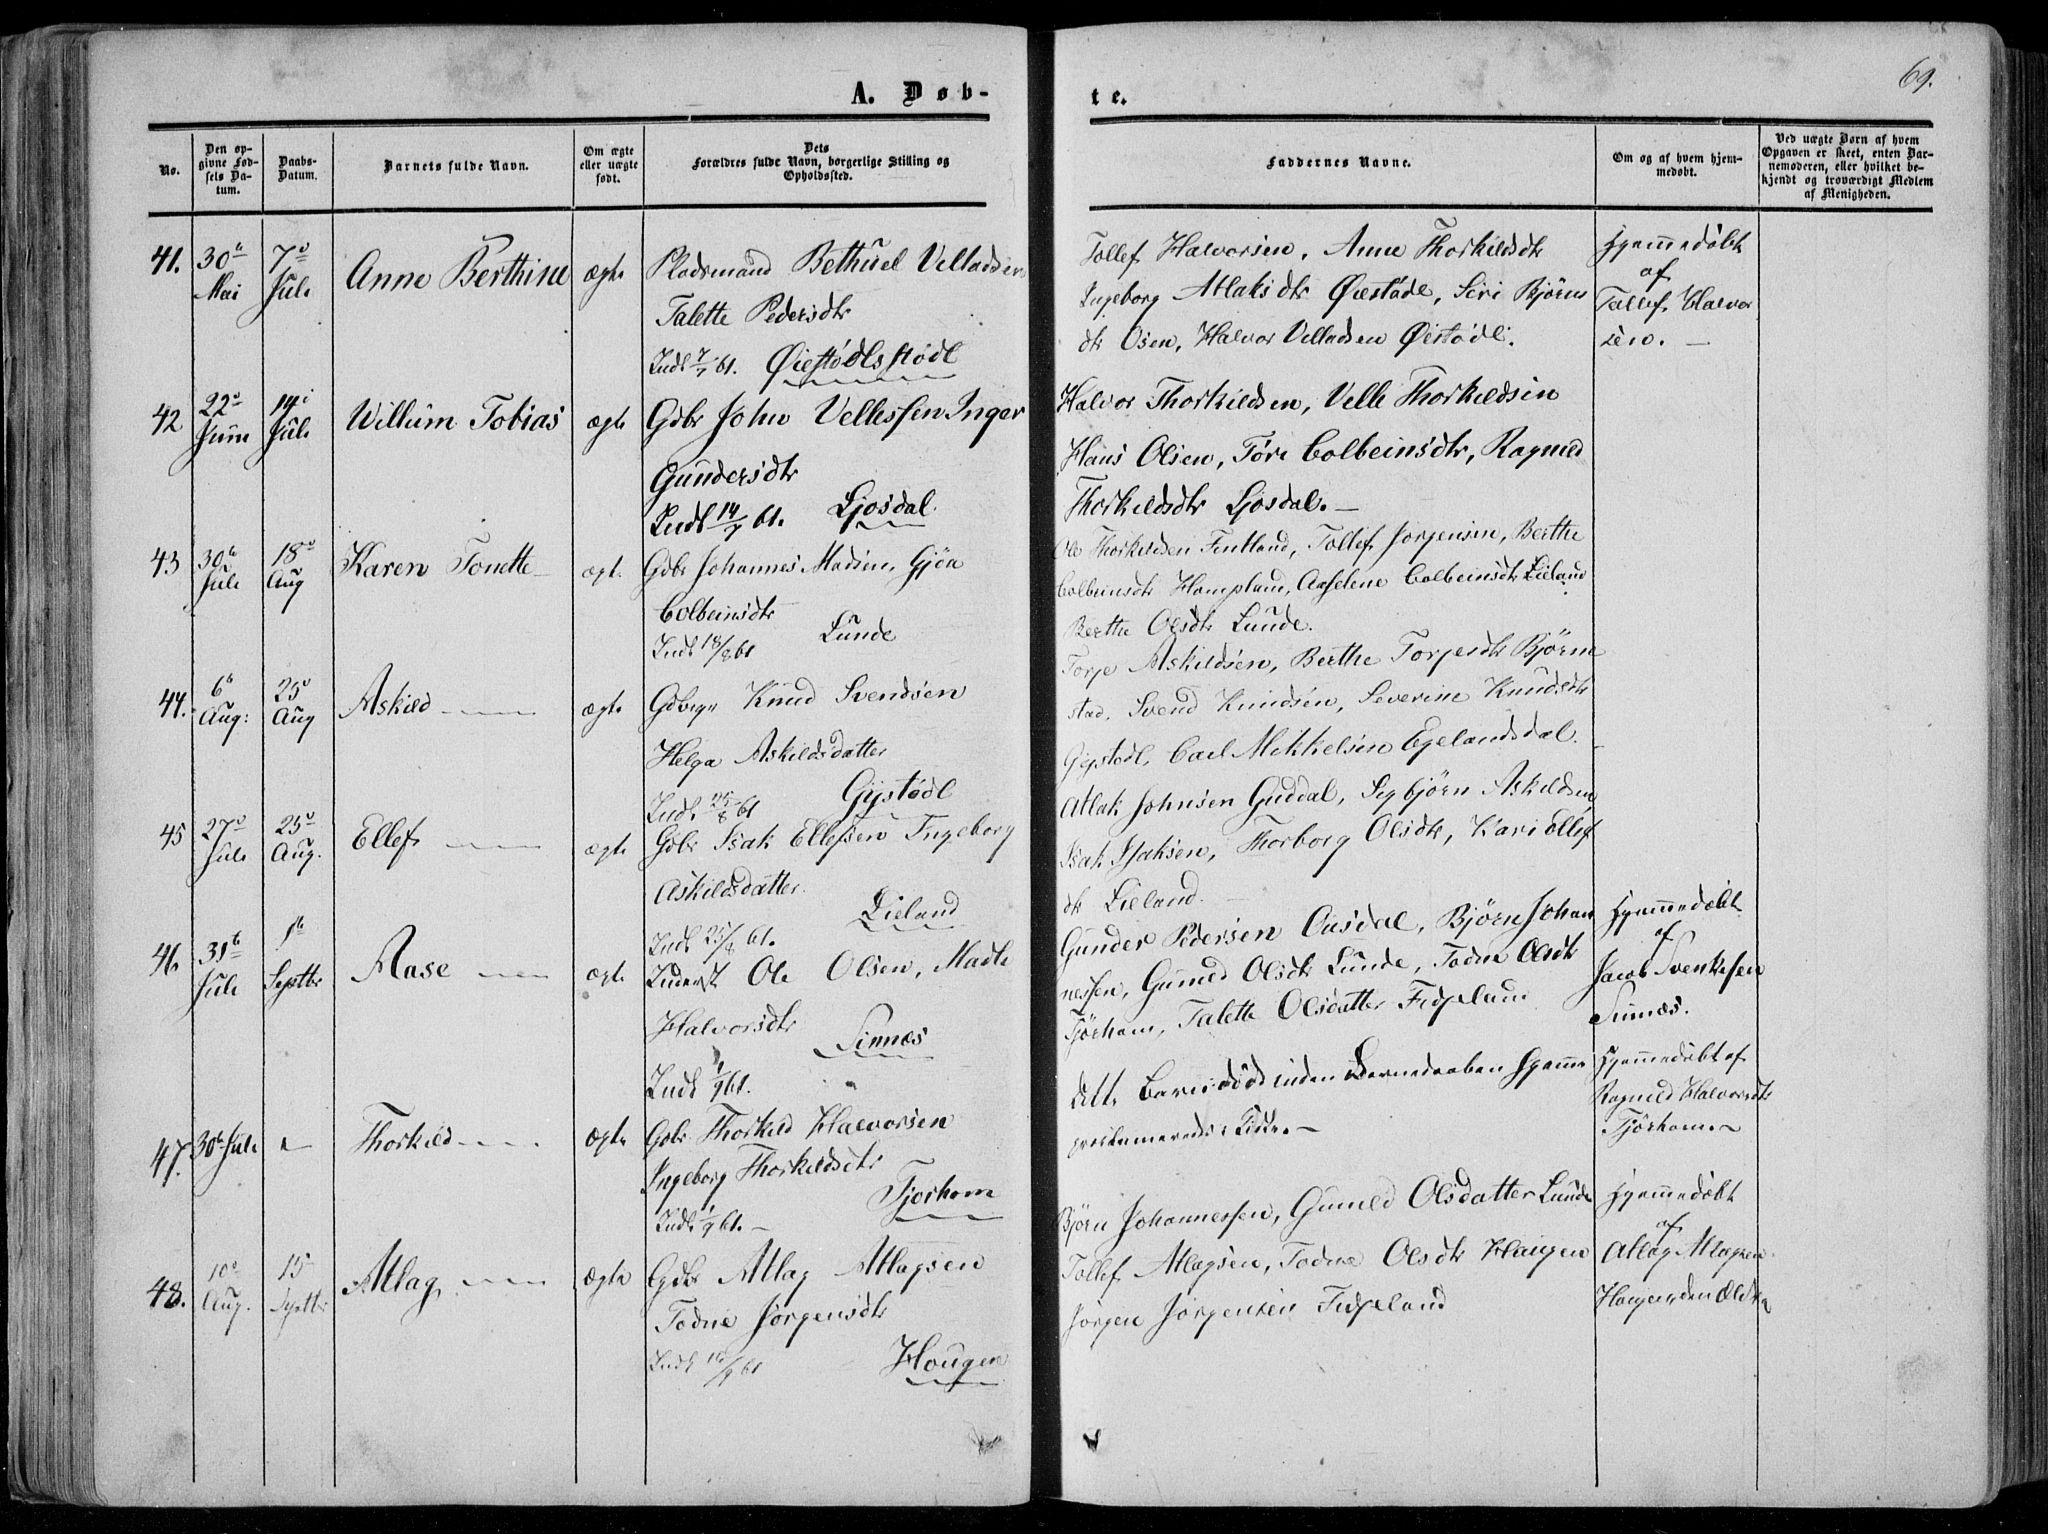 69.
A. Døb-
te.
No.
Den op-
givne Fød-
sels Da-
tum.
Daabs-
Datum.
Barnets fulde Navn.
Om ægte
eller uægte
født.
Dets
Forældres fulde Navn, borgerlige Stilling og
Opholdssted.
Faddernes Navne.
Om og af hvem hjem-
medøbt.
Ved uægte Børn af hvem
Opgaven er skeet, enten Bar-
nemoderen, eller hvilket be-
kjendt og troværdigt Medlem
af Menigheden.
41. 30 Mai 7 Juli Anne Berthine ægte Pladsmand Bethuel Velladsen
Talette Pedersdtr
Indl 7/7 61. Øiestødlsstødl
Tollef Halvorsen, Anne Thorkildsdtr
Ingeborg Atlaksdtr Øiestødl, Siri Bjørns
dtr Osen, Halvor Velladsen Øiestødl.
Hjemmedøbt
af
Tollef Halvor
sen. —
42 22 Juni 14 Juli Willum Tobias ægte Gdbr John Vellessen Inger
Gundersdtr
Indl 14/7 61. Ljosdal
Halvor Thorkildsen, Velle Thorkildsen
Hans Olsen, Tore Colbeinsdtr, Ragnild
Thorkildsdtr Ljosdal. —
43 30 Juli 18 Aug Karen Tonette ægt. Gdbr Johannes Madsen, Gjøa
Colbeinsdtr
Indl 18/8 61 Lunde
Ole Thorkildsen Fintland, Tollef Jørgensen, Berthe
Colbeinsdtr Hompland, Aaselene Colbeinsdtr Lieland
Berthe Olsdtr Lunde.
44. 6 Aug: 25 Aug Askild ægte Knud Svendsen
Helga Askildsdatter
Indl 25/8 61 Gystødl
Torje Askildsen, Berthe Torjesdtr Bjørne
stad, Svend Knudsen, Severine Knudsdtr
Gystødl, Carl Mikkelsen Egelandsdal.
45 27 Juli 25 Aug. Ellef ægte Gdbr Isak Ellefsen Ingeborg
Askildsdatter
Indl 25/8 61. Lieland
Atlak Johnsen Guddal, Segbjørn Askildsen
Isak Isaksen, Thorborg Olsdtr, Kari Ellef
dtr Lieland. —
46 31 Juli 1 Septbr Aase ægte Inderst Ole Olsen, Madle
Halvorsdtr
Indl 1/9 61. Sinnæs
Gunder Pedersen Ousdal, Bjørn Johan
nessen, Gunild Olsdtr Lunde, Todne Olsdtr
Tjørhom, Talette Olsdatter Fidjeland
Hjemmedøbt
af
Jacob Svenkesen
Sinnæs.
47. 30 Juli Thorkild ægte Gdbr Thorkild Halvorsen
Ingeborg Thorkildsdtr
Indl 1/9 61. — Tjorhom
Dette Barn død inden Barnedaaben
Hjemmedøbt af
Ragnild Halvorsdtr
Tjørhom.
48. 10 Aug. 15 Septbr Atlag ægte Gdbr Atlag Atlagsen
Todne Jørgensdtr
Indl 15/9 61 Hougen
Bjørn Johannessen, Gunild Olsdatter Lunde
Tollef Atlagsen, Todne Olsdtr Haugen
Jørgen Jørgensen Fidjeland
Hjemmedøbt
af
Atlag Atlagsen
Haugen, den Ældre